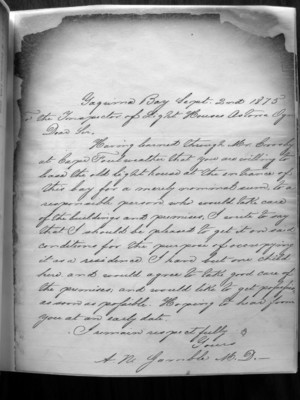 Yaquina Bay Sept. 2nd 1875
To the Inspector of Light Houses Astoria Ogn
Dear Sir,
Having learnt through Mr Crosby
at Cape Foulweather that you are willing to
lease the old Light house at the entrance of
this bay for a merely nominal sum to a
responsable person who would take care
of the buildings and premises, I write to say
that I should be pleased to get it on said
conditions for the purpose of occupying
it as a residence I have but one child
here and would agree to take good care of
the premises, and would like to get possession
as soon as possible Hoping to hear from
you at an early date
I remain respectfully
Yours
M. D.